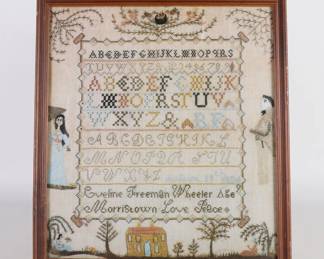 ABCDEFGHIJKLMNOPQRS
TUVWXYZ
ABCDEFGHIJK
LMNOPQRSTUV
WXYZ &
ABCDEFGHIKL
MNOPQRSTU
VWXYZ
Eveline Freeman Wheeler Age
Morristown Love Peace